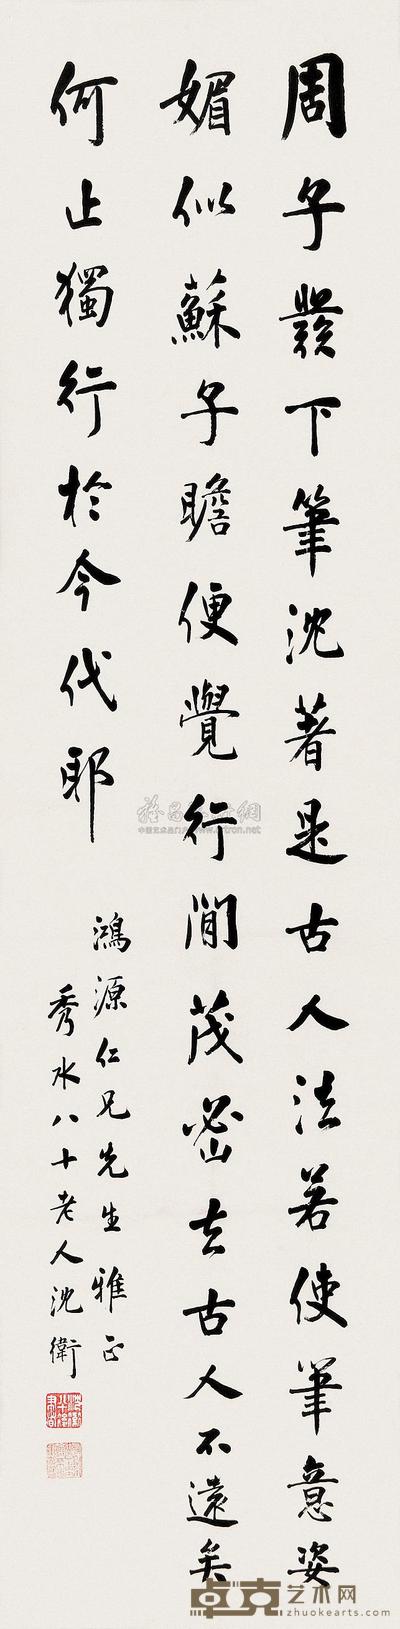 周子發下筆沈著是古人法若使筆意姿
媚似蘇子瞻便覺行間茂密去古人不遠矣
何止獨行於今代耶
鴻源仁兄先生雅正
秀水八十老人沈衛
中国艺术品门户网 artron.net
卓克艺术网
zhuokearts.com